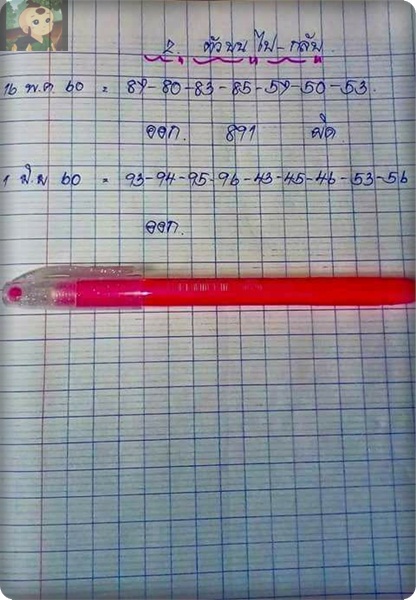 2. ตัวบน ไป-กลับ.
16 พ.ค 60 = 87-80-83-85-57-50-53.
ออก. 891 ผิด
1 มิ.ย 60 = 93-94-95-96-43-45-46-53-56
ออก.